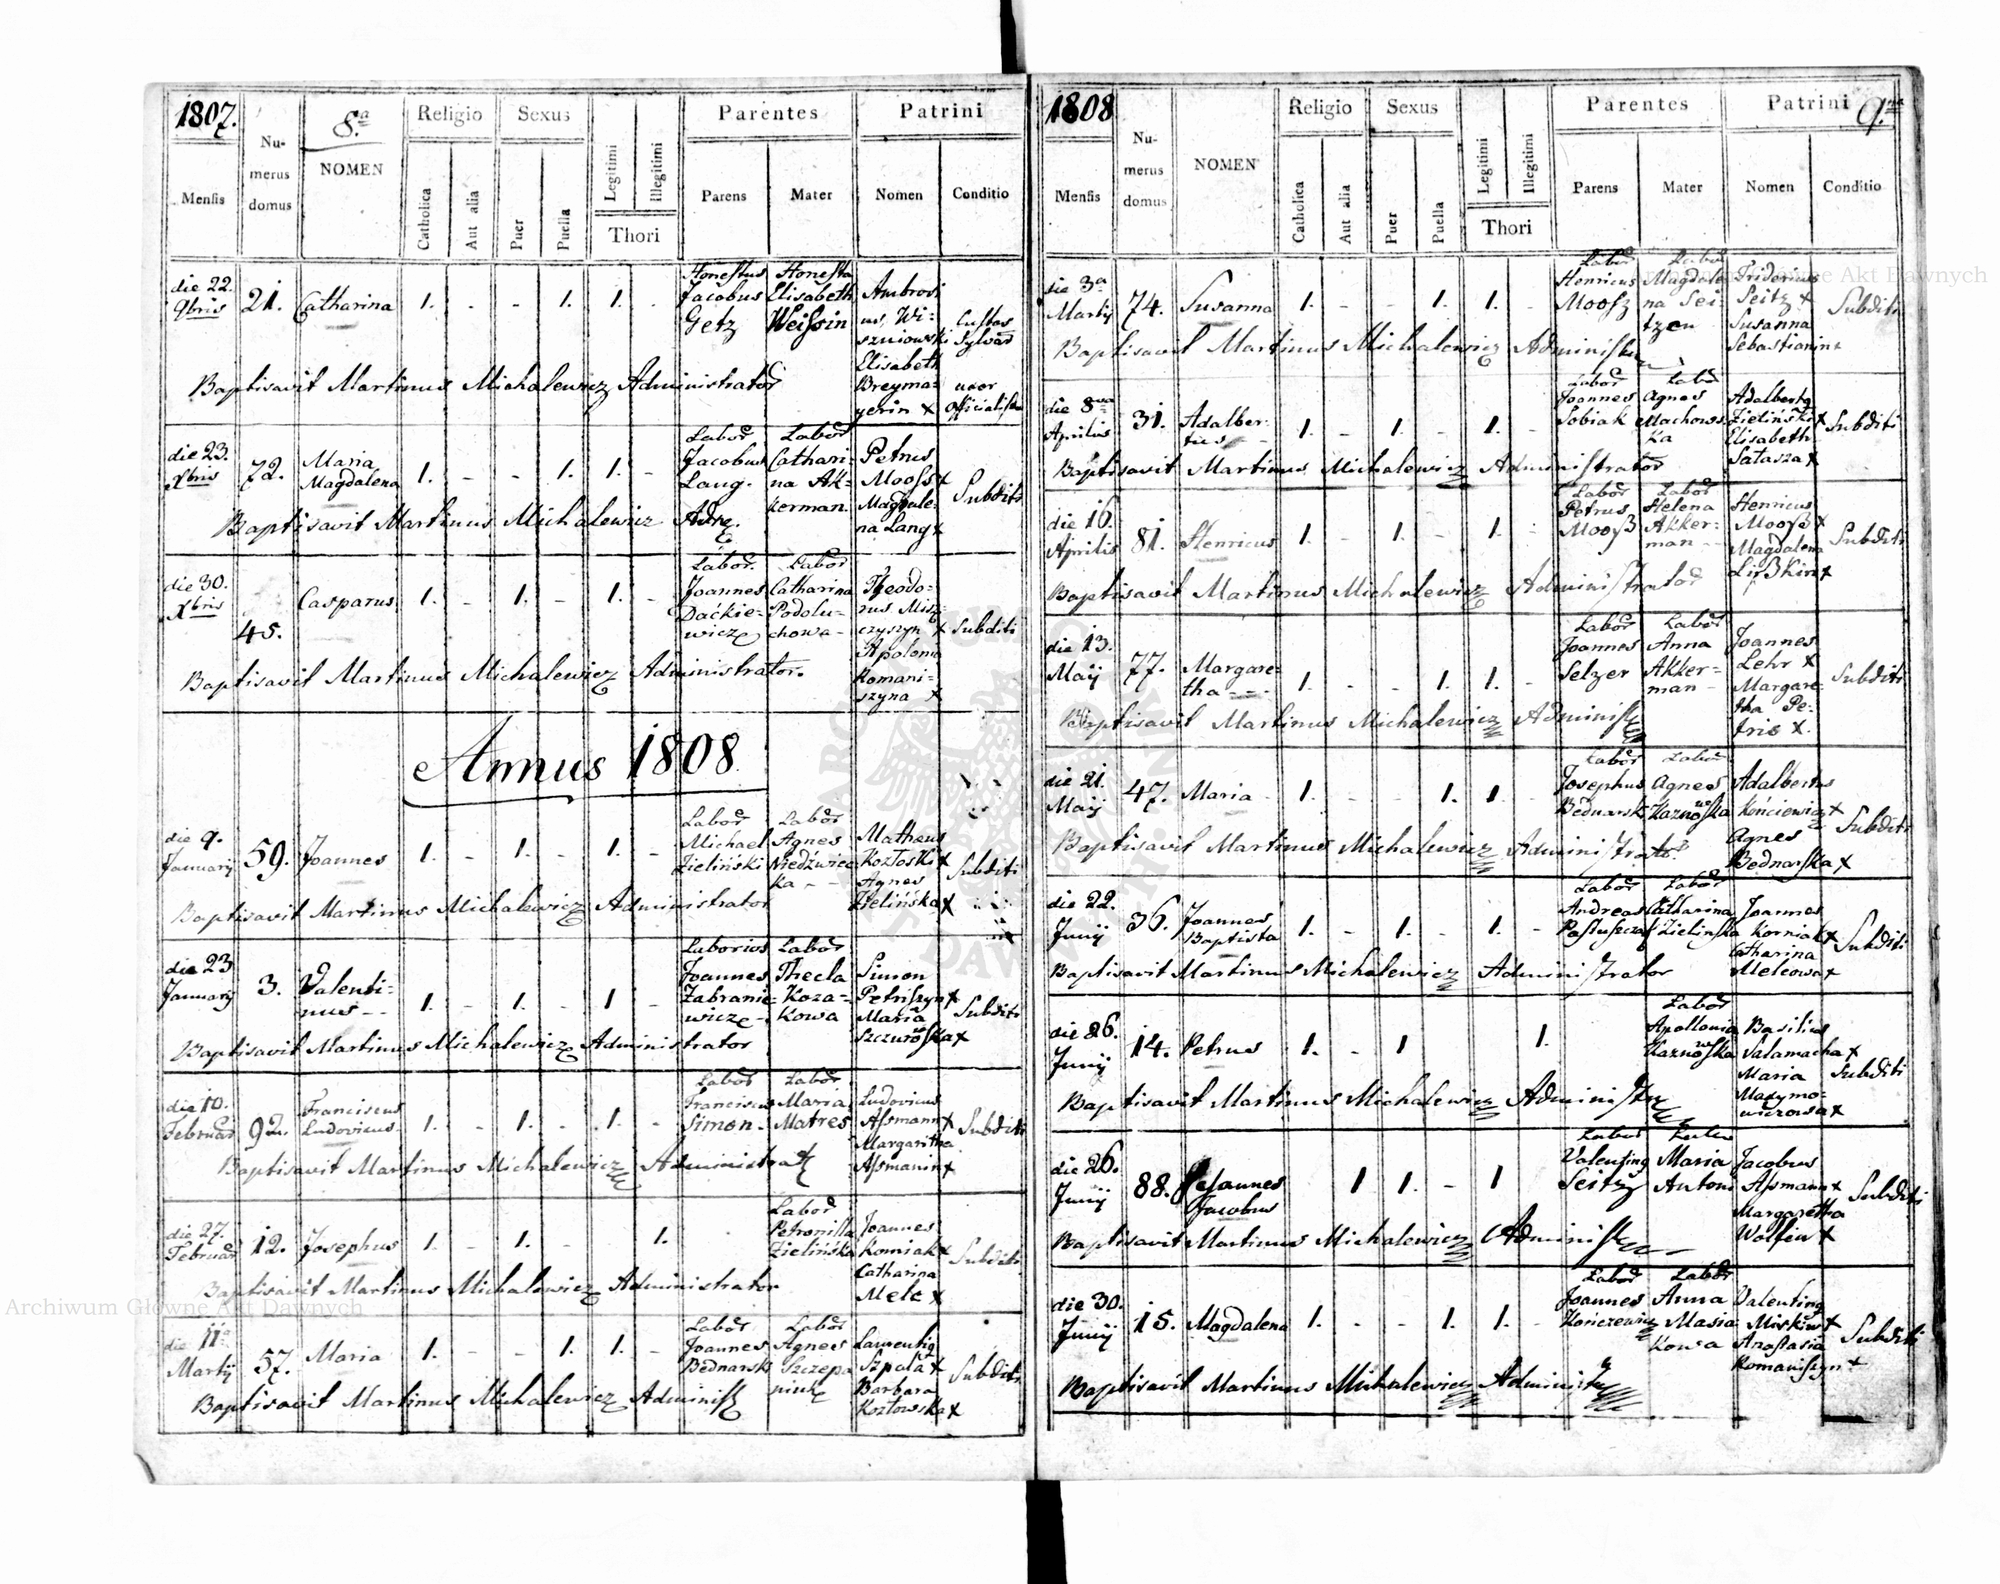 1807.
8.ª
Nu-
merus
domus
Mensis
NOMEN
Religio
Sexus
Parentes
Patrini
Catholica
Aut alia
Puer
Puella
Legitimi
Illegitimi
Thori
Parens
Mater
Nomen
Conditio
die 22.
9bris
21.
Catharina
1. - - 1. 1.
Honestus
Jacobus
Getz
Honesta
Elisabeth
Weissin
Ambrosi
us, Wi-
szniowski
Elisabeth
Breyma-
yerin x
Custos
Sylvar
uxor
Baptisavit Martinus Michalewicz Administrator
die 23.
Xbris
72.
Maria
Magdalena
1. - - 1. 1. -
Labor
Jacobus
Lang.
Labor
Cathari-
na Ak-
kerman.
Petrus
Mooss x
Magdale-
na Lang x
Subditi
Baptisavit Martinus Michalewicz Adr.
die 30.
Xbris
45.
Casparus
1. - 1. - 1. -
Labor.
Joannes
Daćkie-
wicz
Labor
Catharina
Podolu-
chowa -
Theodo-
rus Misz-
czyszyn x
Apolonia
Romani-
szyna x
Subditi
Baptisavit Martinus Michalewicz Administrator.
Annus 1808
die 9.
Januarij
59.
Joannes
1. - 1. - 1. -
Labor
Michael
Zieliński
Labor
Agnes
Niedźwiec
ka - -
Matheus
Kozłoski x
Agnes
Zielińska x
Subditi
Baptisavit Martinus Michalewicz Administrator
die 23
Januarij
3.
Valenti-
nus - -
1. - 1. - 1 -
Laborios
Joannes
Zabranie-
wicz -
Labor
Thecla
Koza-
kowa
Simon
Petriszyn x
Maria
Szczurowska x
Subditi
Baptisavit Martinus Michalewicz Administrator
die 10.
Februar
92.
Franciscus
Ludovicus
1. - 1. - 1. -
Labor
Franciscus
Simon -
Labor.
Maria
Matres
Ludovicus
Assmann x
Margaritha
Assmanin x
Subditi
Baptisavit Martinus Michalewicz Administrat
die 27.
Februar
12.
Josephus
1. - 1. - 1.
Labor
Petronilla
Zielińska
Joannes
Korniak x
Catharina
Melc x
Subditi
Baptisavit Martinus Michalewicz Administrator
die 11ª
Martij
57.
Maria
1. - - 1. 1.
Labor
Joannes
Bednarski
Labor
Agnes
Szczepa
niuk
Laurentig
Szpula x
Barbara
Kozłowska x
Subditi
Baptisavit Martinus Michalewicz Administ
1808
9.na
Mensis
Nu-
merus
domus
NOMEN
Religio
Sexus
Parentes
Patrini
Catholica
Aut alia
Puer
Puella
Legitimi
Illegitimi
Thori
Parens
Mater
Nomen
Conditio
die 3ª
Martij
74.
Susanna
1. - - 1. 1. -
Labor
Henricus
Moosz
Labor
Magdale-
na Sei-
tzen
Fridericus
Seitz x
Susanna
Sebastianin x
Subditi
Baptisavit Martinus Michalewicz Administ
die 8va
Aprilis
31.
Adalber-
tus - -
1. - 1. - 1. -
Labor
Joannes
Sobiak
Labor
Agnes
Machows-
ka
Adalbertg
Zieliński x
Elisabeth
Satasza x
Subditi
Baptisavit Martinus Michalewicz Administrator
die 16.
Aprilis
81.
Henricus
1. - 1. - 1. -
Labor
Petrus
Mooß
Labor
Helena
Akker-
man - -
Henricus
Mooß x
Magdalena
Lißkin x
Subditi
Baptisavit Martinus Michalewicz Administrator
die 13.
Maij
77.
Margare-
tha - - -
1. - - 1. 1. -
Labor
Joannes
Selzer
Labor
Anna
Akker-
man -
Joannes
Lehr x
Margare-
tha Pe-
tris x.
Subditi
Baptisavit Martinus Michalewicz Administ
die 21.
Maij
47.
Maria -
1. - - 1. 1. -
Labor
Josephus
Bednarski
Labor
Agnes
Kaznowska
Adalbertus
Kończewicz x
Agnes
Bednarska x
Subditi
Baptisavit Martinus Michalewicz Administrator
die 22.
Junij
36.
Joannes
Baptista
1. - 1. - 1. -
Labor
Andreas
Pastuszczak
Labor
Catharina
Zielinska
Joannes
Korniak x
Catharina
Melcowa x
Subditi
Baptisavit Martinus Michalewicz Administrator
die 26.
Junij
14.
Petrus
1. - 1 1.
Labor
Apollonia
Kaznowska
Basilius
Salamacha x
Maria
Maxymo-
wiczowa x
Subditi
Baptisavit Martinus Michalewicz Administr
die 26.
Junij
88.
Joannes
Jacobus
1 1. - 1
Labor
Valenting
Seitz
Labor
Maria
Antoni
Jacobus
Assmann x
Margaretha
Wolfin x
Subditi
Baptisavit Martinus Michalewicz Administ
die 30.
Junij
15.
Magdalena
1. - - 1. 1. -
Labor
Joannes
Kończewicz
Labor
Anna
Masia
kowa
Valenting
Miskiw x
Anastasia
Romaniszyn x
Subditi
Baptisavit Martinus Michalewicz Administr
Archiwum Główne Akt Dawnych
Archiwum Główne Akt Dawnych